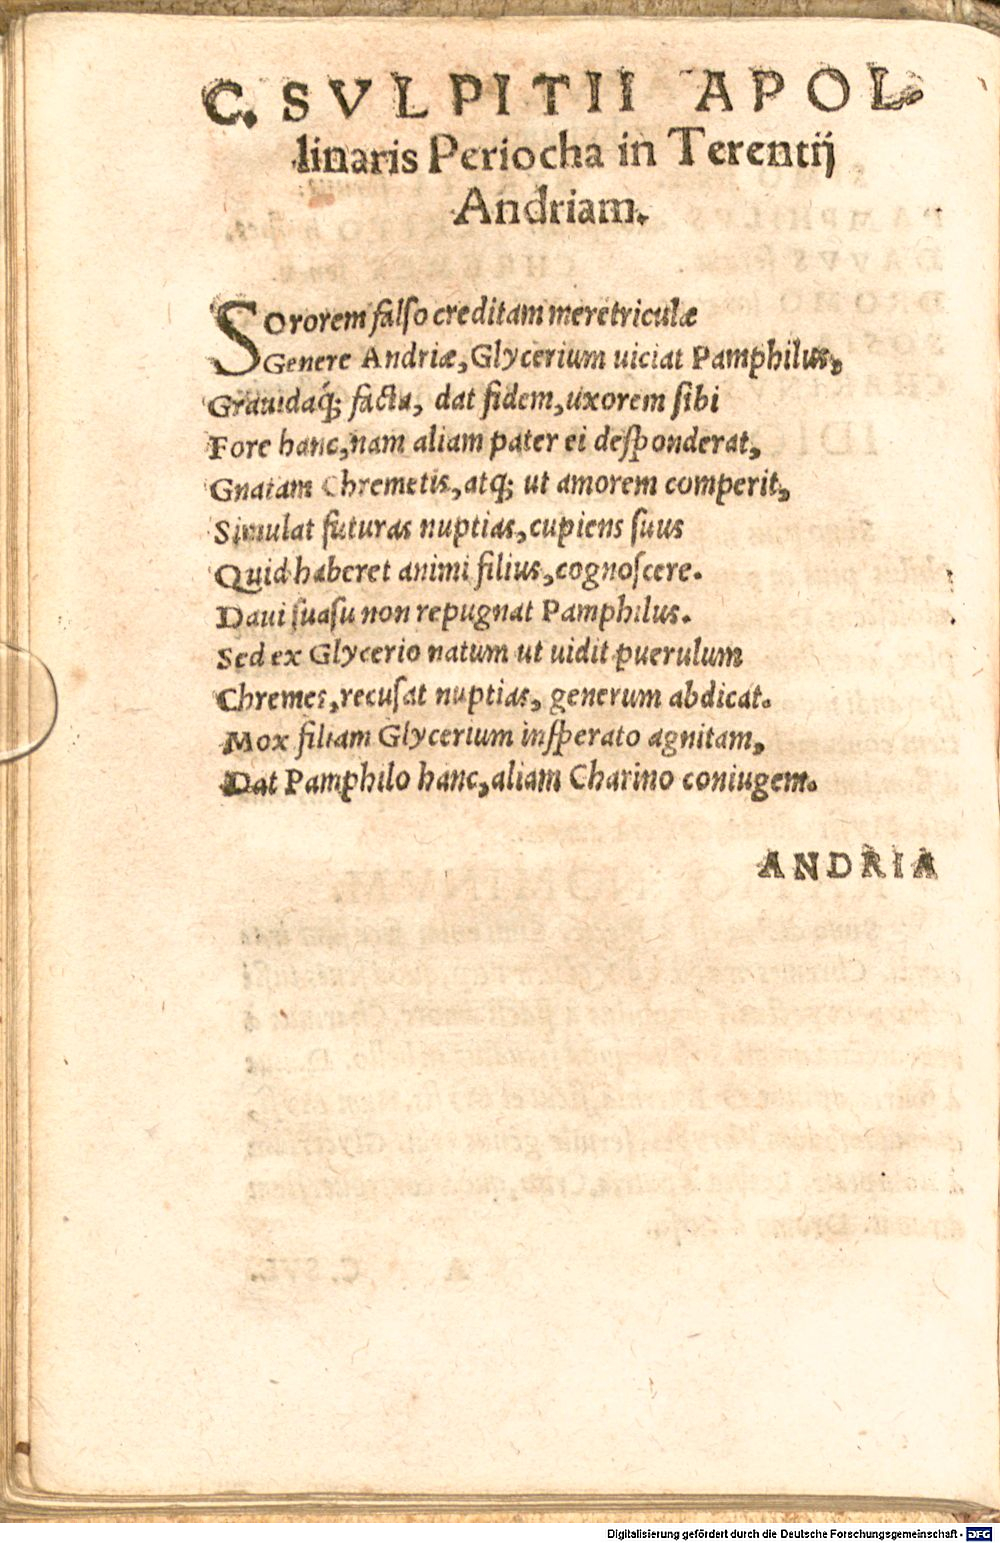 C. SVLPITII APOL-
linaris Periocha in Terentij
Andriam.
Sororem falso creditam meretriculæ
Genere Andriæ, Glycerium uiciat Pamphilus,
Grauidaq́; facta, dat fidem, uxorem sibi
Fore hanc, nam aliam pater ei desponderat,
Gnatam Chremetis, atq; ut amorem comperit,
Simulat futuras nuptias, cupiens suus
Quid haberet animi filius, cognoscere.
Daui suasu non repugnat Pamphilus.
Sed ex Glycerio natum ut uidit puerulum
Chremes, recusat nuptias, generum abdicat.
Mox filiam Glycerium insperato agnitam,
Dat Pamphilo hanc, aliam Charino coniugem.
ANDRIA
Digitalisierung gefördert durch die Deutsche Forschungsgemeinschaft - DFG